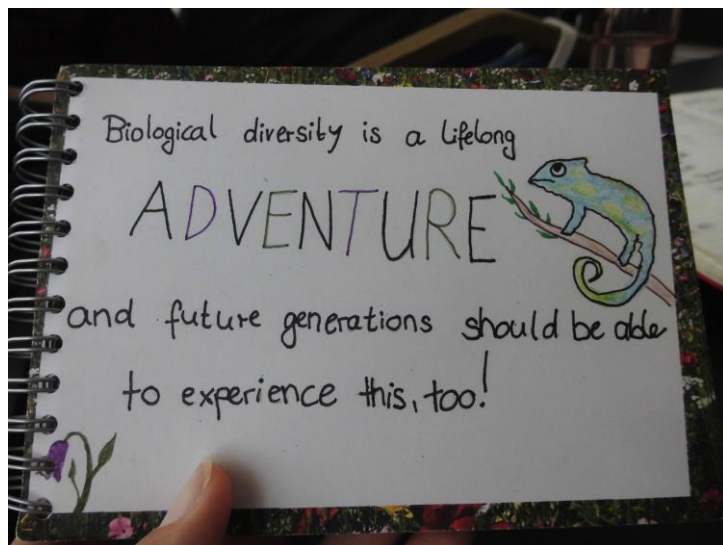 Biological diversity is a lifelong
ADVENTURE
and future generations should be able
to experience this, too!